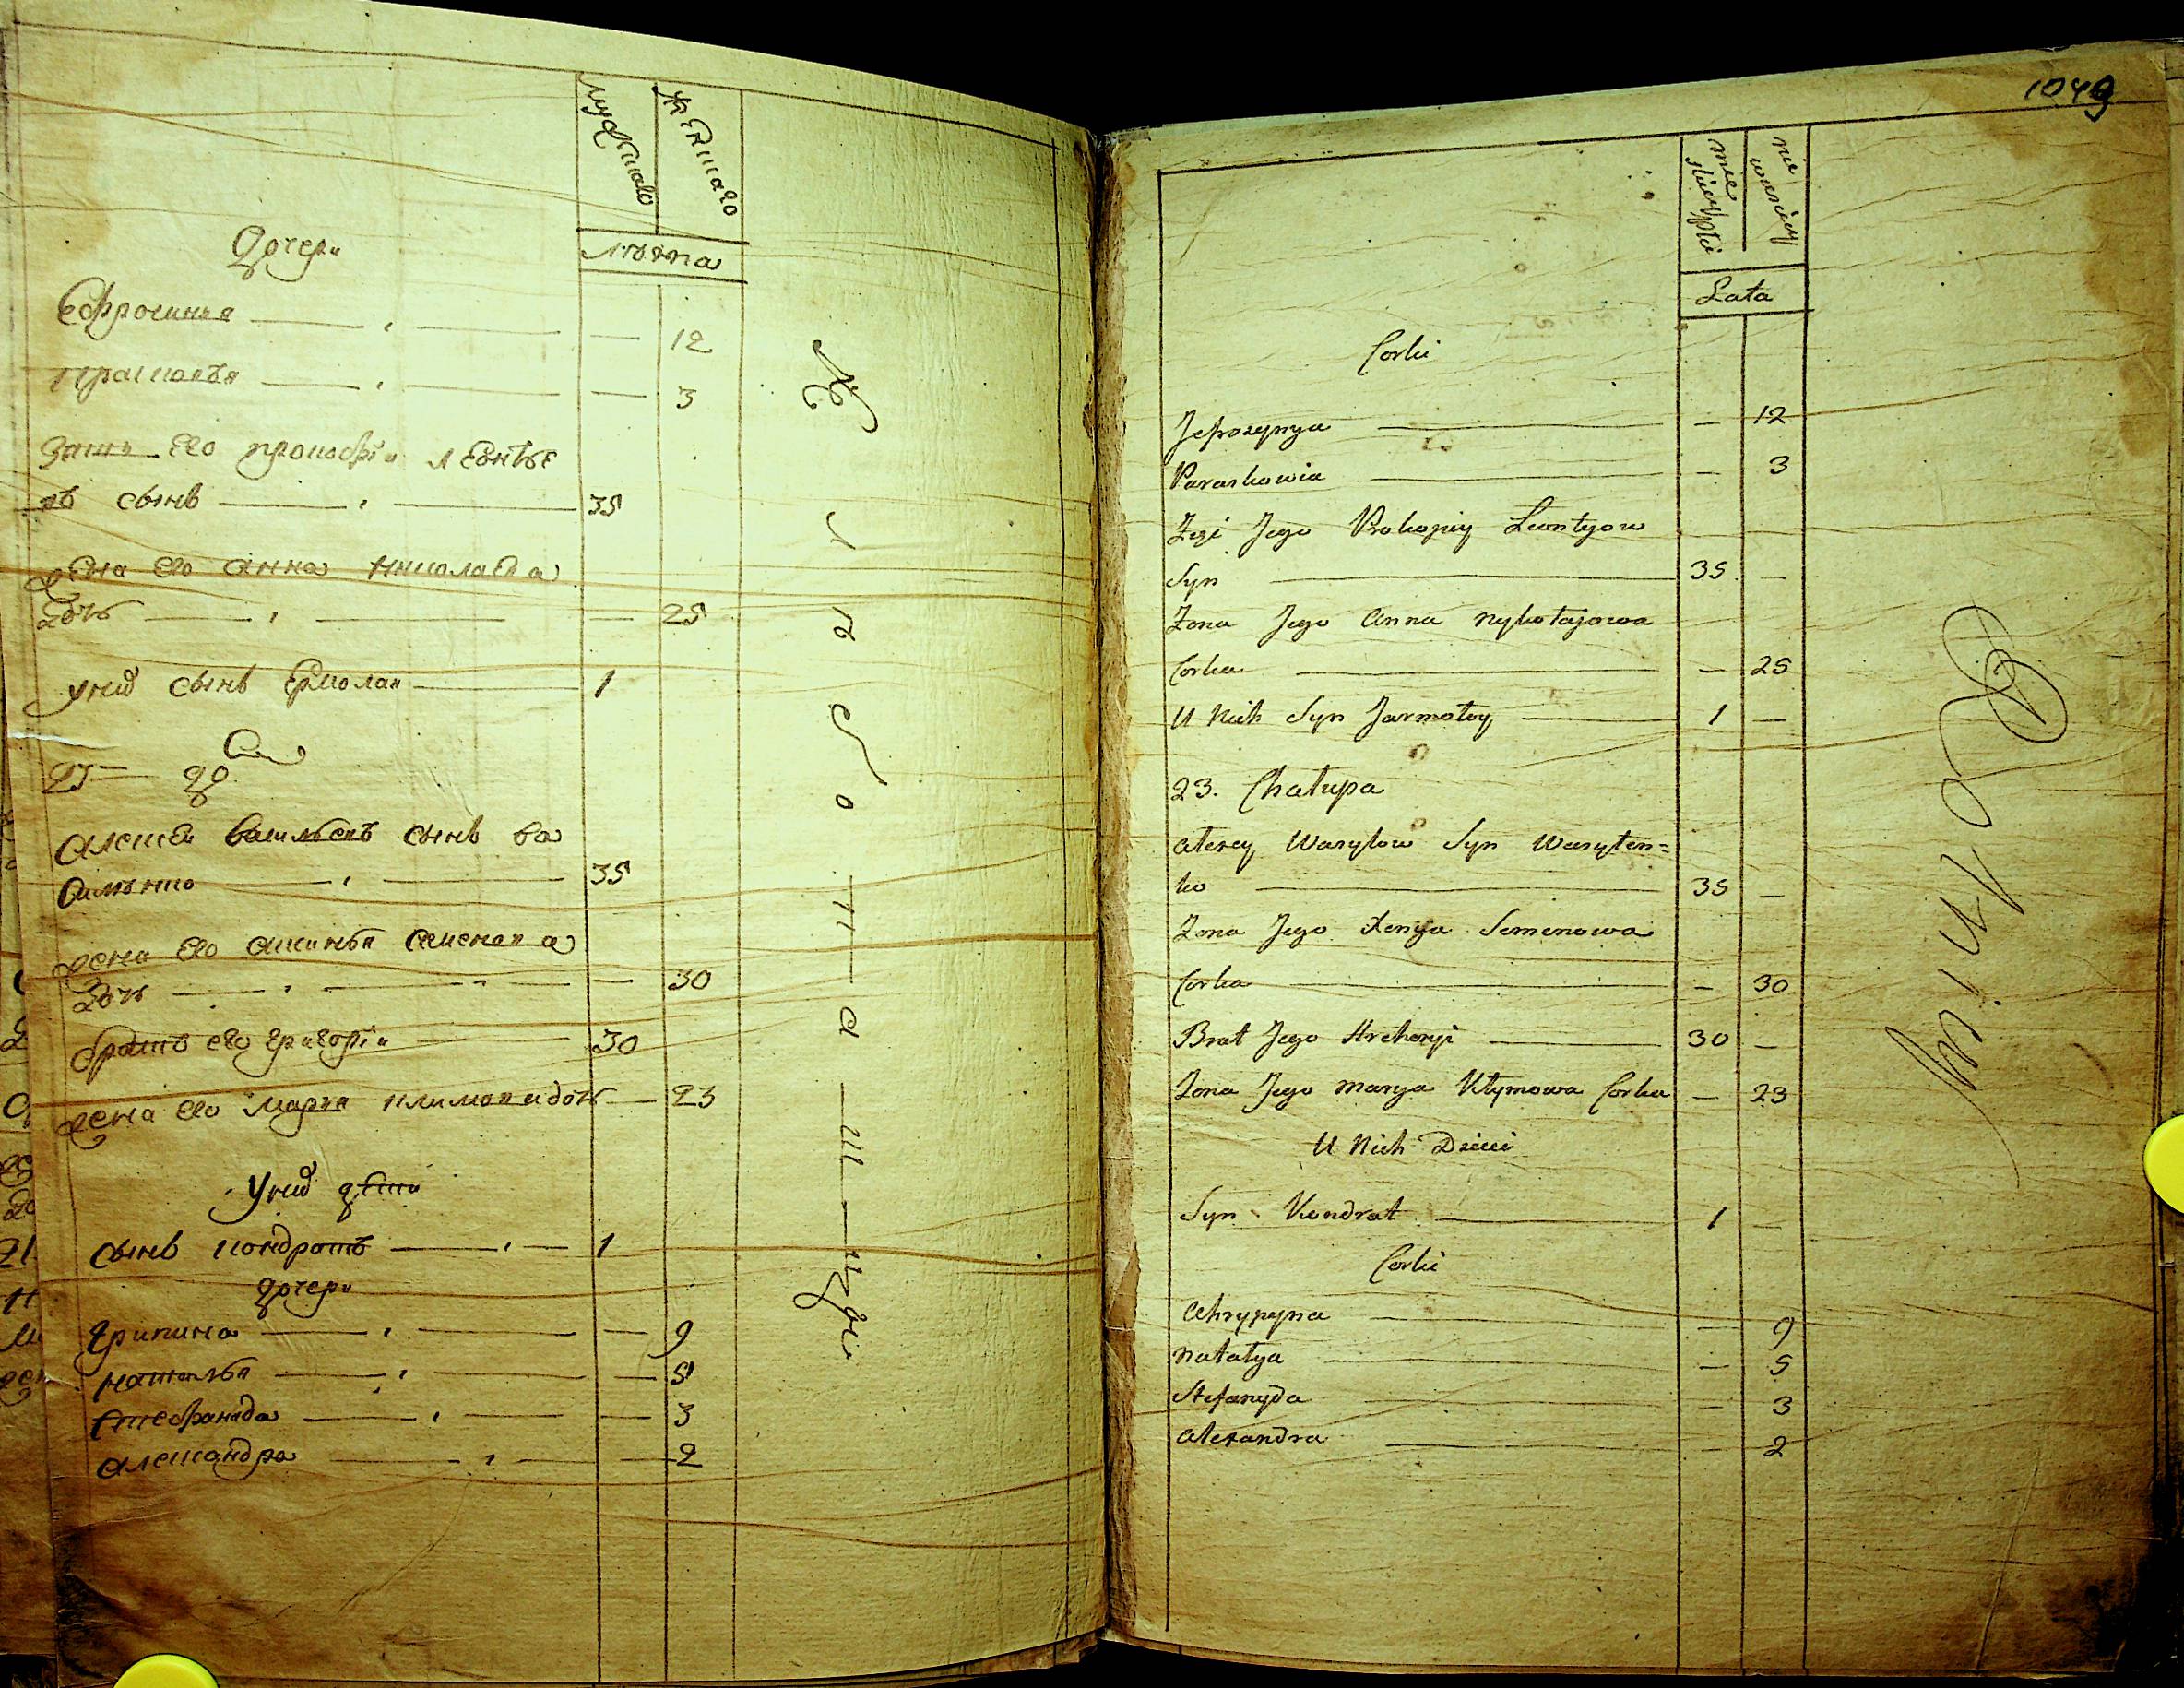 мужеска женска
лѣта
дочери
Ефросинья — — 12
Прасковья — — 3
зять его прокофій леонтье
въ сынъ — 35
жена его анна николаева
дочь — — 25
у них сынъ Ермолай — 1
23 — дв
алексей васильевъ сынъ ва
силенко — 35
жена его аксинья семенова
дочь — — 30
братъ его григорій — 30
жена его марья климова дочь — 23
у них дети
сынъ кондратъ — 1
дочери
грипина — — 9
наталья — — 5
стефанида — — 3
александра — — 2
1049
Lata
Corki
Jefrozynya — — 12
Paraskowia — — 3
Zęć Jego Prokopiy Leontyow
Syn — 35 —
Zona Jego Anna Nykołajowa
Corka — — 25
U Nich Syn Jarmołoy — 1 —
23. Chałupa
Alexey Wasylow Syn Wasyłen=
ko — 35 —
Zona Jego Xenya Semenowa
Corka — — 30
Brat Jego Hrehoryi — 30 —
Zona Jego Marya Kłymowa Corka — 23
U Nich Dzieci
Syn Kondrat — 1 —
Corki
Ahrypyna — — 9
Natalya — — 5
Stefanyda — — 3
Alexandra — — 2